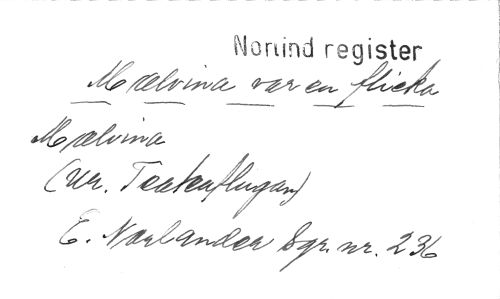 Norlind register
Malvina var en flicka
Malvina
(Ur. Teaterflugan)
E. Norlander Sgr. nr. 236